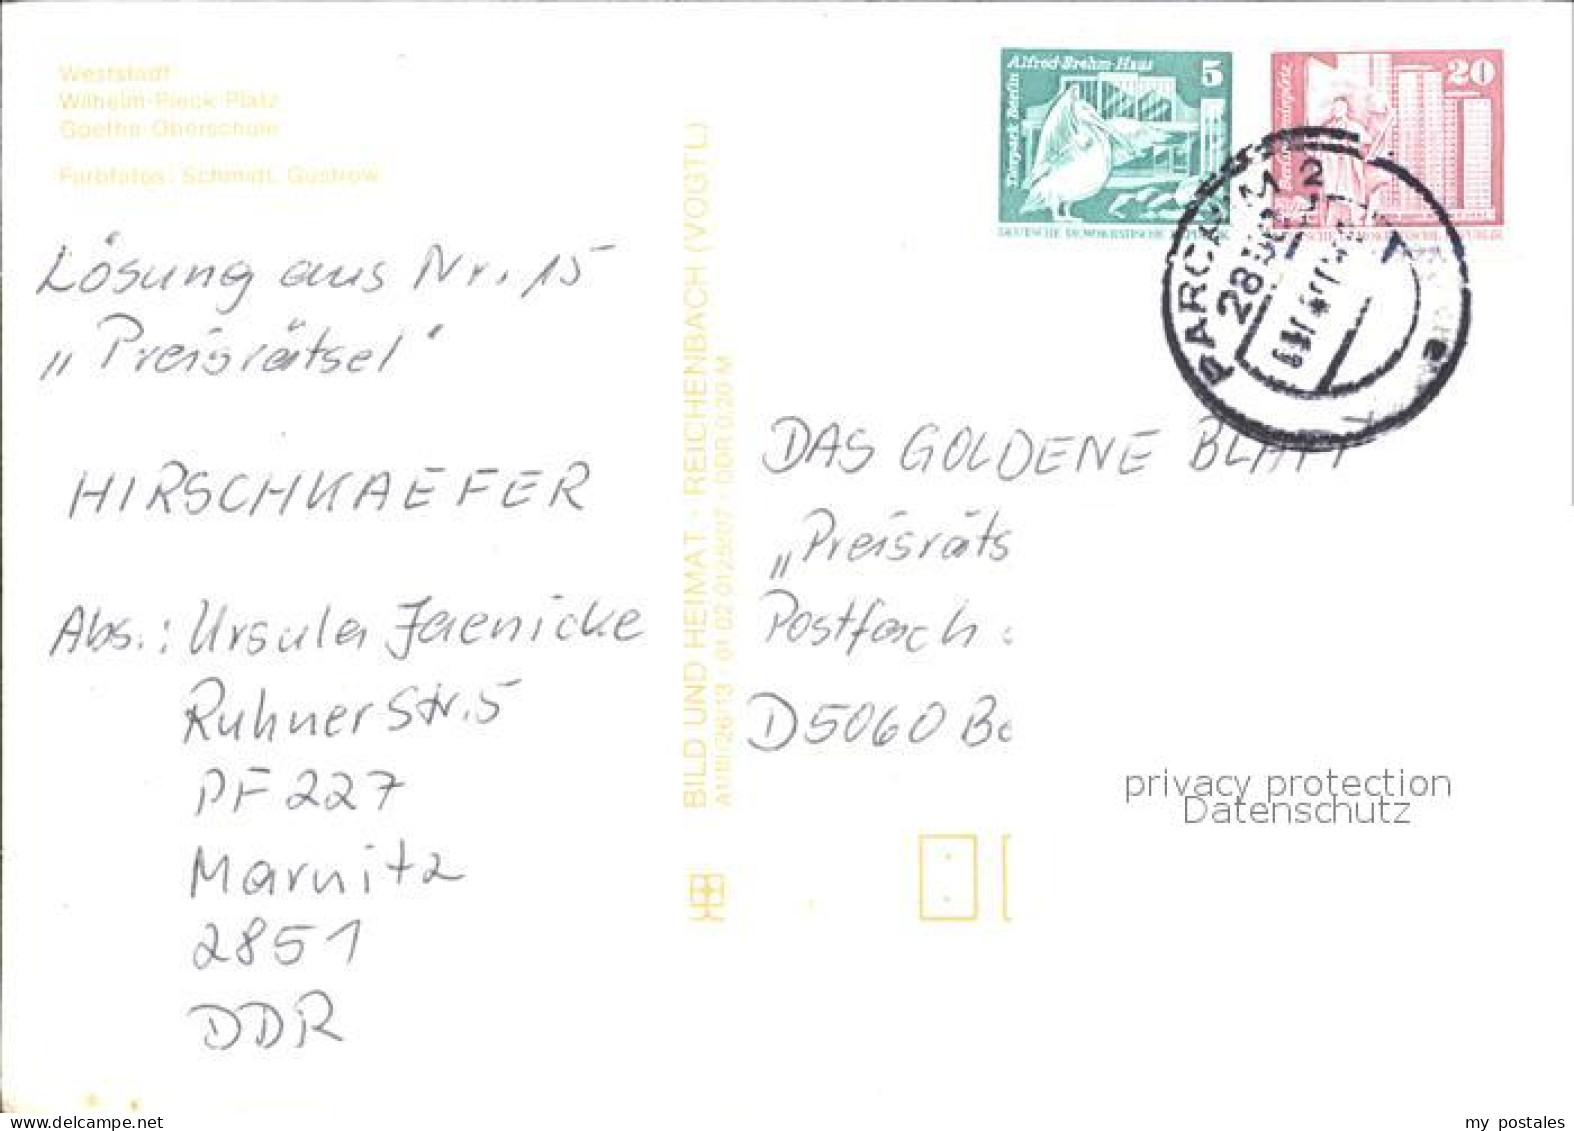 Weststadt
Wilhelm-Pieck-Platz
Goethe-Oberschule
Farbfotos: Schmidt, Güstrow
Lösung aus Nr. 15
„Preisrätsel"
HIRSCHKAEFER
Abs.: Ursula Jaenicke
Ruhner Str. 5
PF 227
Marnitz
2851
DDR
BILD UND HEIMAT · REICHENBACH (VOGTL)
01 02 0125/07 · DDR 0,20 M
Alfred-Brehm-Haus
5
Tierpark Berlin
DEUTSCHE DEMOKRATISCHE REPUBLIK
20
PARCHIM 2
28
DAS GOLDENE BLATT
„Preisräts
Postfach
D 5060 Be
privacy protection
Datenschutz
www.ansichtskartenversand.com
my postales